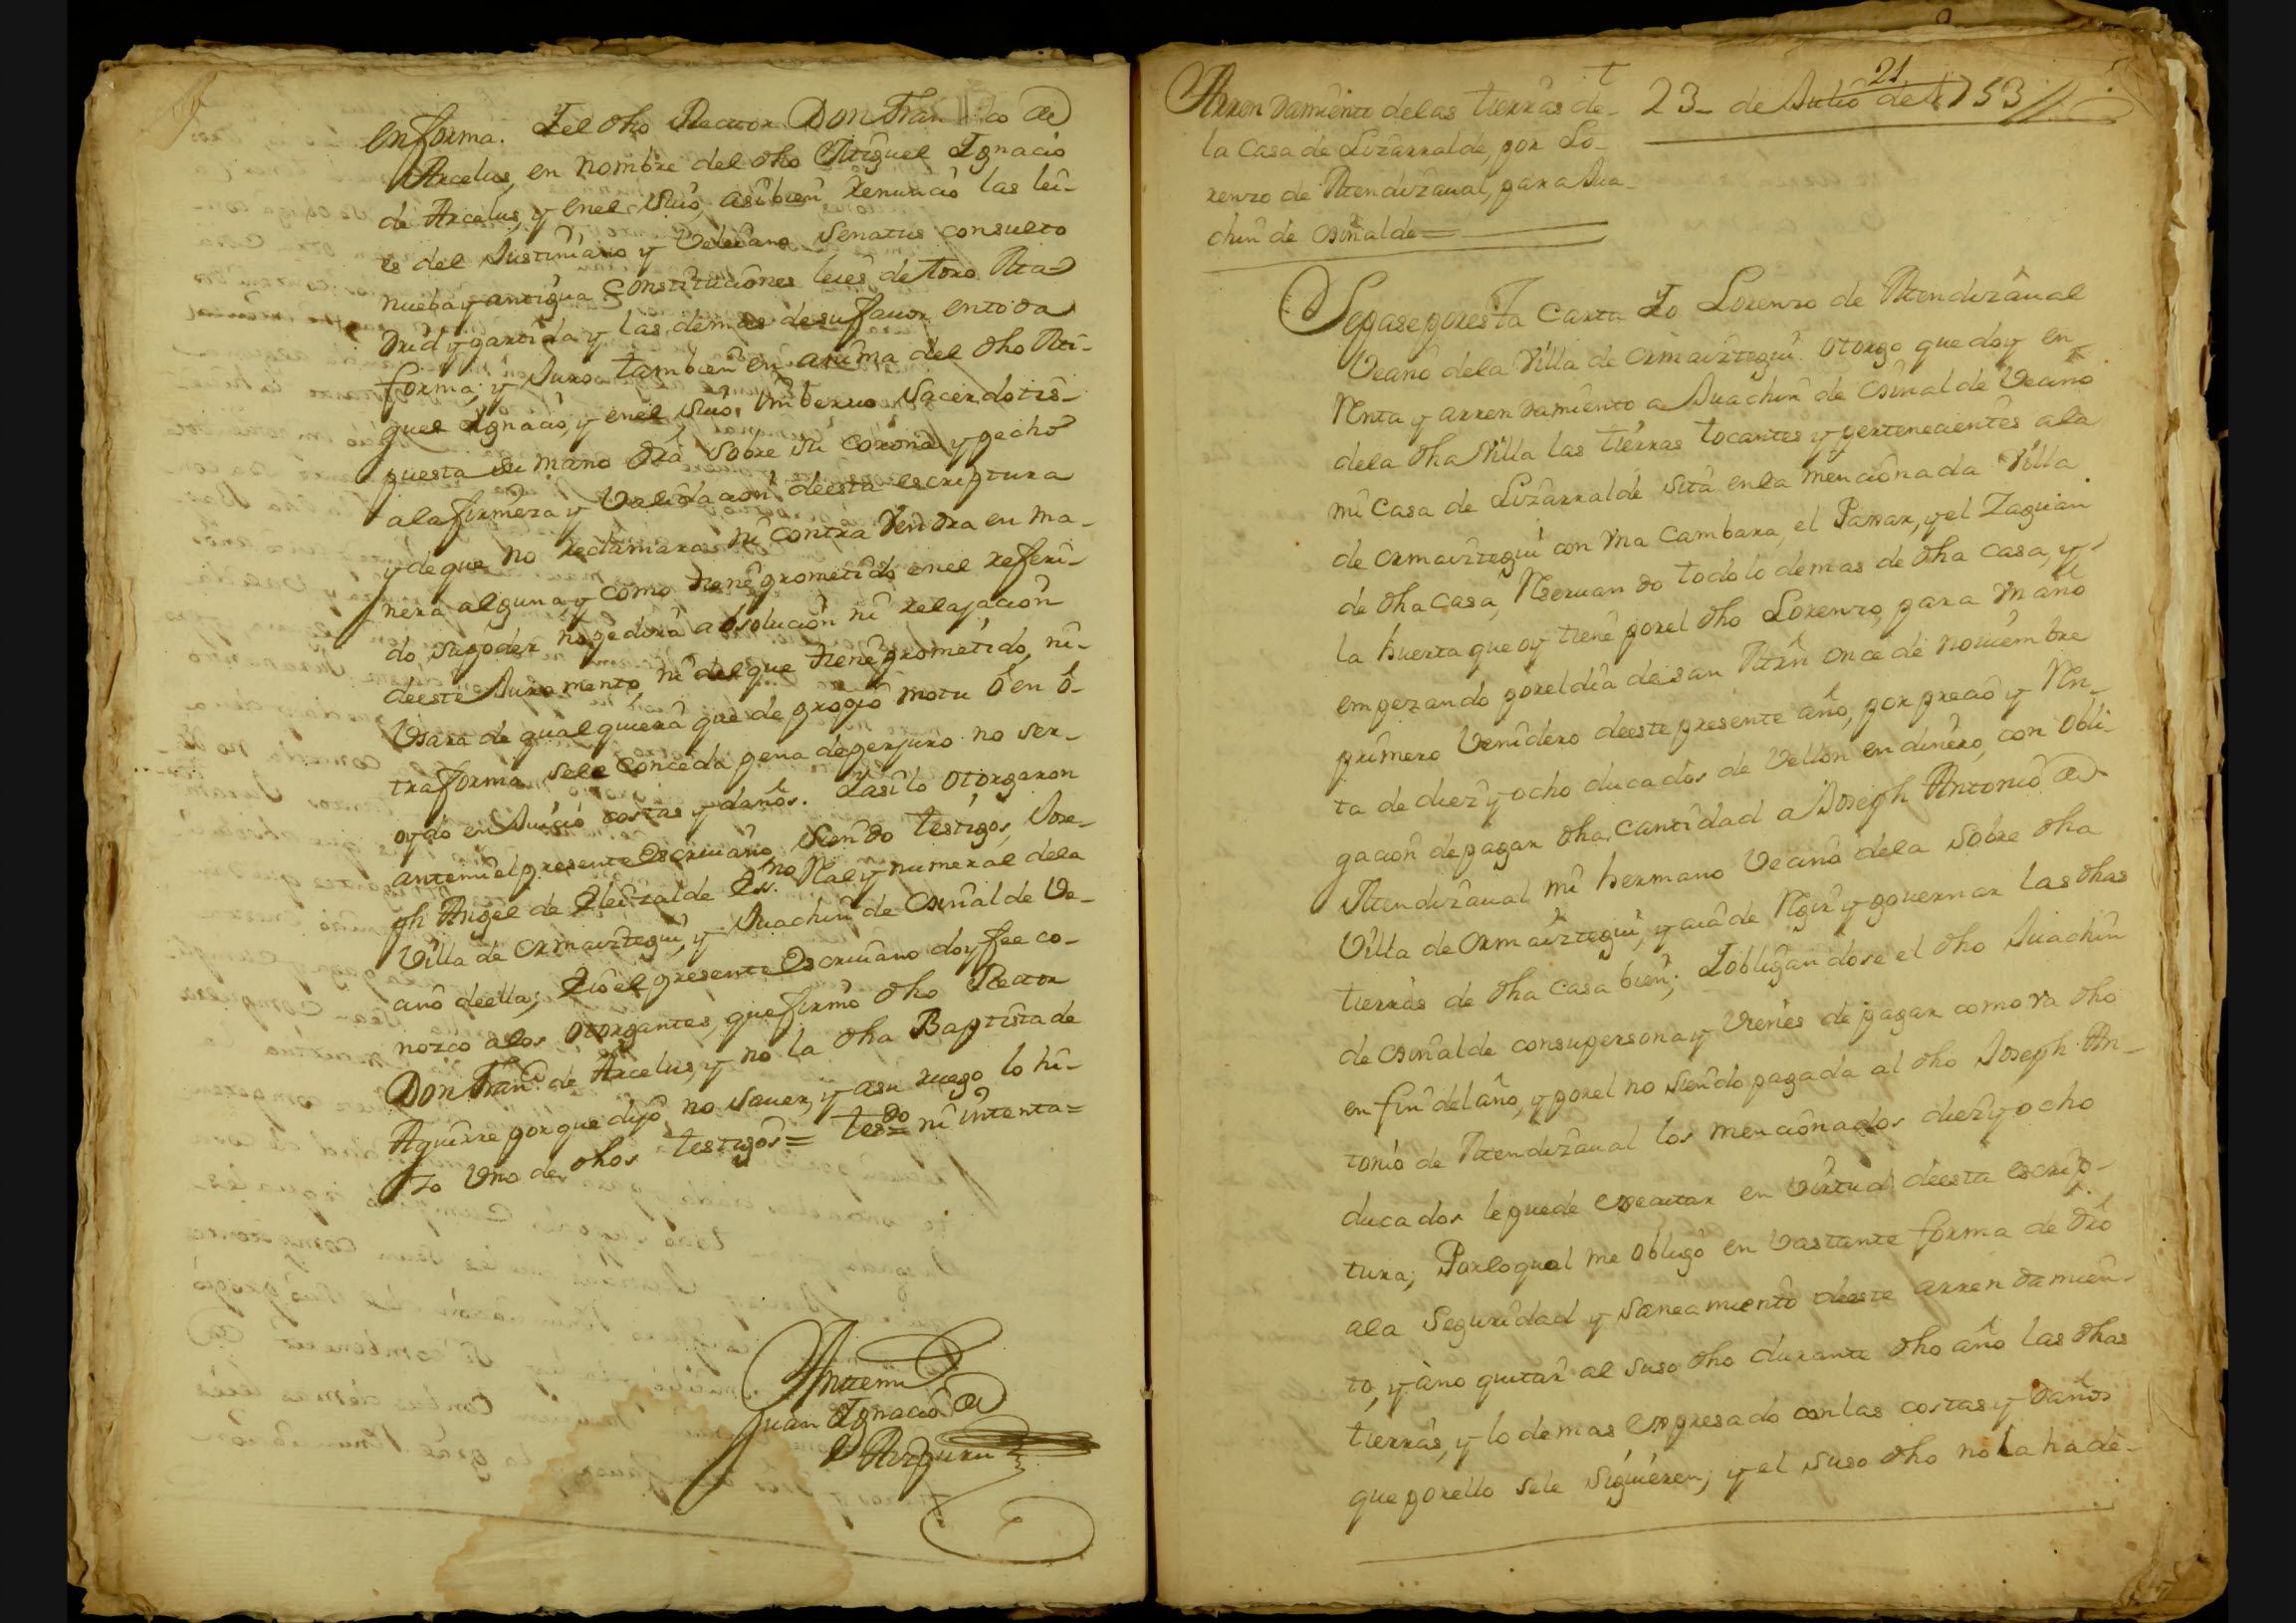 enforma. Y el dho Rector Don Fran co de
Arcelus, en nombre del dho Miguel Ygnacio
de Arcelus, y enel suio, asibien Renunció las lei-
es del Justiniano y Veleiano Senatus consulto
nueba y antigua Constituciones leies de toro Ma-
drid y partida y las demas desu favor entoda
forma; y Juro tambien en anima del dho Mi-
guel Ygnacio, y enel suio, in beruo Sacerdotis-
puesta su mano dra sobre su corona y pecho
ala firmeza y Validacion deesta escriptura
y deque no reclamara ni contra Vendra en ma-
nera alguna, y como tiene prometido enel referi-
do su poder no pedira absolución ni relajación
deeste Juramento, ni del que tiene prometido, ni-
Vsara de qualquiera que de propio motu ó en ó-
tra forma sele conceda pena de perjuro no ser-
oydo en Juicio costas y daños. Y asi lo otorgaron
antemi el presente Escriuano siendo testigos, Jose-
ph Angel de Eleizalde Ess.no Real y numeral dela
Villa de Ormaiztegui, y Juachin de Osinalde Ve-
cino deella; E io el presente Escriuano doy fee co-
nozco alos otorgantes, que firmó dho Rector
Don Fran.co de Arcelus, y no la dha Baptista de
Aguirre porque dijo no sauer, y asu ruego lo hi-
zo Vno de dhos testigos = tesdo = ni intenta=
Antemi
Juan Ygnacio de
Aizpuru
Arrendamiento delas tierras de-
la Casa de Lizarralde, por Lo-
renzo de Mendizaual, para Jua-
chin de Osinalde =
21
23- de Julio de 1753
Sepase por esta Carta Yo Lorenzo de Mendizaual
Vecino dela Villa de Ormaiztegui otorgo que doy en
Renta y arrendamiento a Juachin de Osinalde Vecino
dela dha Villa las tierras tocantes y pertenecientes ala
mi Casa de Lizarralde sita enla mencionada Villa
de Ormaiztegui con Vna Cambara, el Parrar, y el Zaguan
de dha casa, Reseruando todo lo demas de dha casa, y
la huerta que oy tiene porel dho Lorenzo, para Vn año
empezando porel dia de san Mrn once de nouiembre
primero Venidero deeste presente año, por precio y Ren-
ta de diez y ocho ducados de Vellon en dinero, con obli-
gacion de pagar dha cantidad a Joseph Antonio de
Mendizaual mi hermano Vecino dela sobre dha
Villa de Ormaiztegui, y acia de Regir y gouernar las dhas
tierras de dha casa bien; Y obligandose el dho Juachin
de Osinalde consu persona y Vienes de pagar como va dho
en fin del año, y porel no siendo pagada al dho Joseph An-
tonio de Mendizaual los mencionados diez y ocho
ducados lepuede executar en Virtud deesta escrip-
tura; Porloqual me obligo en Vastante forma de dro
ala Seguridad y Saneamiento deeste arrendamien-
to, y àno quitar al suso dho durante dho año las dhas
tierras, y lo demas expresado con las costas y daños
que porello sele siguieren; y el suso dho no la ha de-